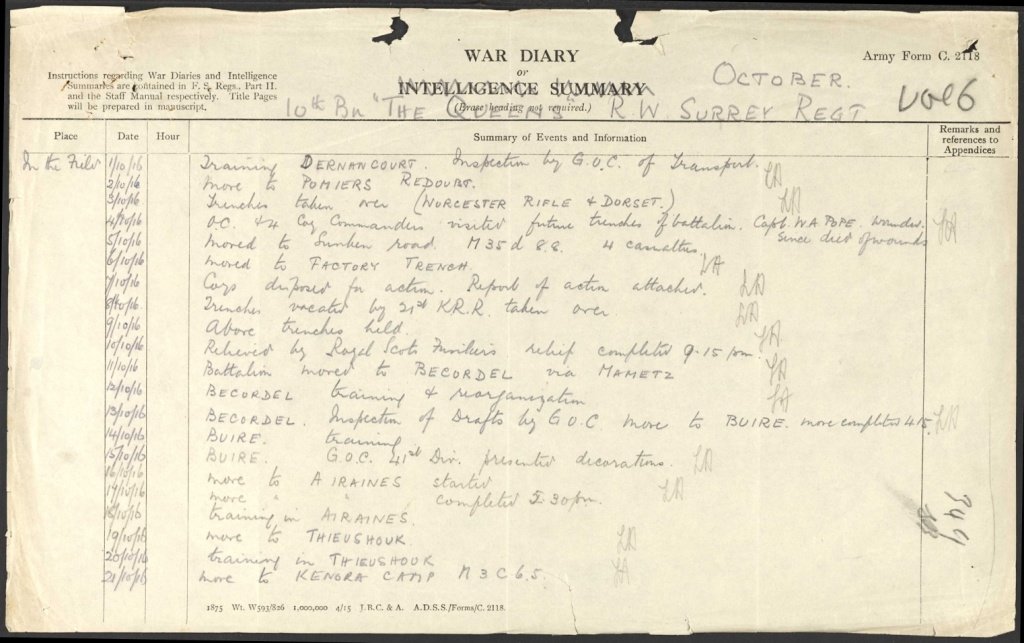 WAR DIARY
or
INTELLIGENCE SUMMARY
(Erase heading not required.)
Army Form C. 2118
Instructions regarding War Diaries and Intelligence
Summaries are contained in F. S. Regs., Part II.
and the Staff Manual respectively. Title Pages
will be prepared in manuscript.
OCTOBER.
10th Bn "THE QUEENS" R.W SURREY REGT
Vol 6
Place Date Hour Summary of Events and Information Remarks and references to Appendices
In the Field 1/10/16 Training DERNANCOURT. Inspection by G.O.C. of Transport.
2/10/16 move to POMIERS REDOUBT.
3/10/16 Trenches taken over (WORCESTER RIFLE & DORSET.)
4/10/16 O.C. & 4 Coy Commanders visited future trenches of battalion. Capt. W.A. POPE. wounded. since died of wounds
5/10/16 moved to Sunken road. M 35 d 8.8. 4 casualties.
6/10/16 moved to FACTORY TRENCH
7/10/16 Coys disposed for action. Report of action attached.
8/10/16 Trenches vacated by 21st K.R.R. taken over.
9/10/16 Above trenches held.
10/10/16 Relieved by Royal Scots Fusiliers relief completed 9.15 pm.
11/10/16 Battalion moved to BECORDEL via MAMETZ
12/10/16 BECORDEL training & reorganization
13/10/16 BECORDEL. Inspection of Drafts by G.O.C. move to BUIRE. move completed 4.15.
14/10/16 BUIRE. training
15/10/16 BUIRE. G.O.C. 41st Div. presented decorations.
16/10/16 move to AIRAINES started
17/10/16 move " " completed 5.30pm.
18/10/16 training in AIRAINES.
19/10/16 move to THIEUSHOUK
20/10/16 training in THIEUSHOUK
21/10/16 move to KENORA CAMP M 3 C 6.5.
349
1875 Wt. W593/826 1,000,000 4/15 J.B.C. & A. A.D.S.S./Forms/C. 2118.